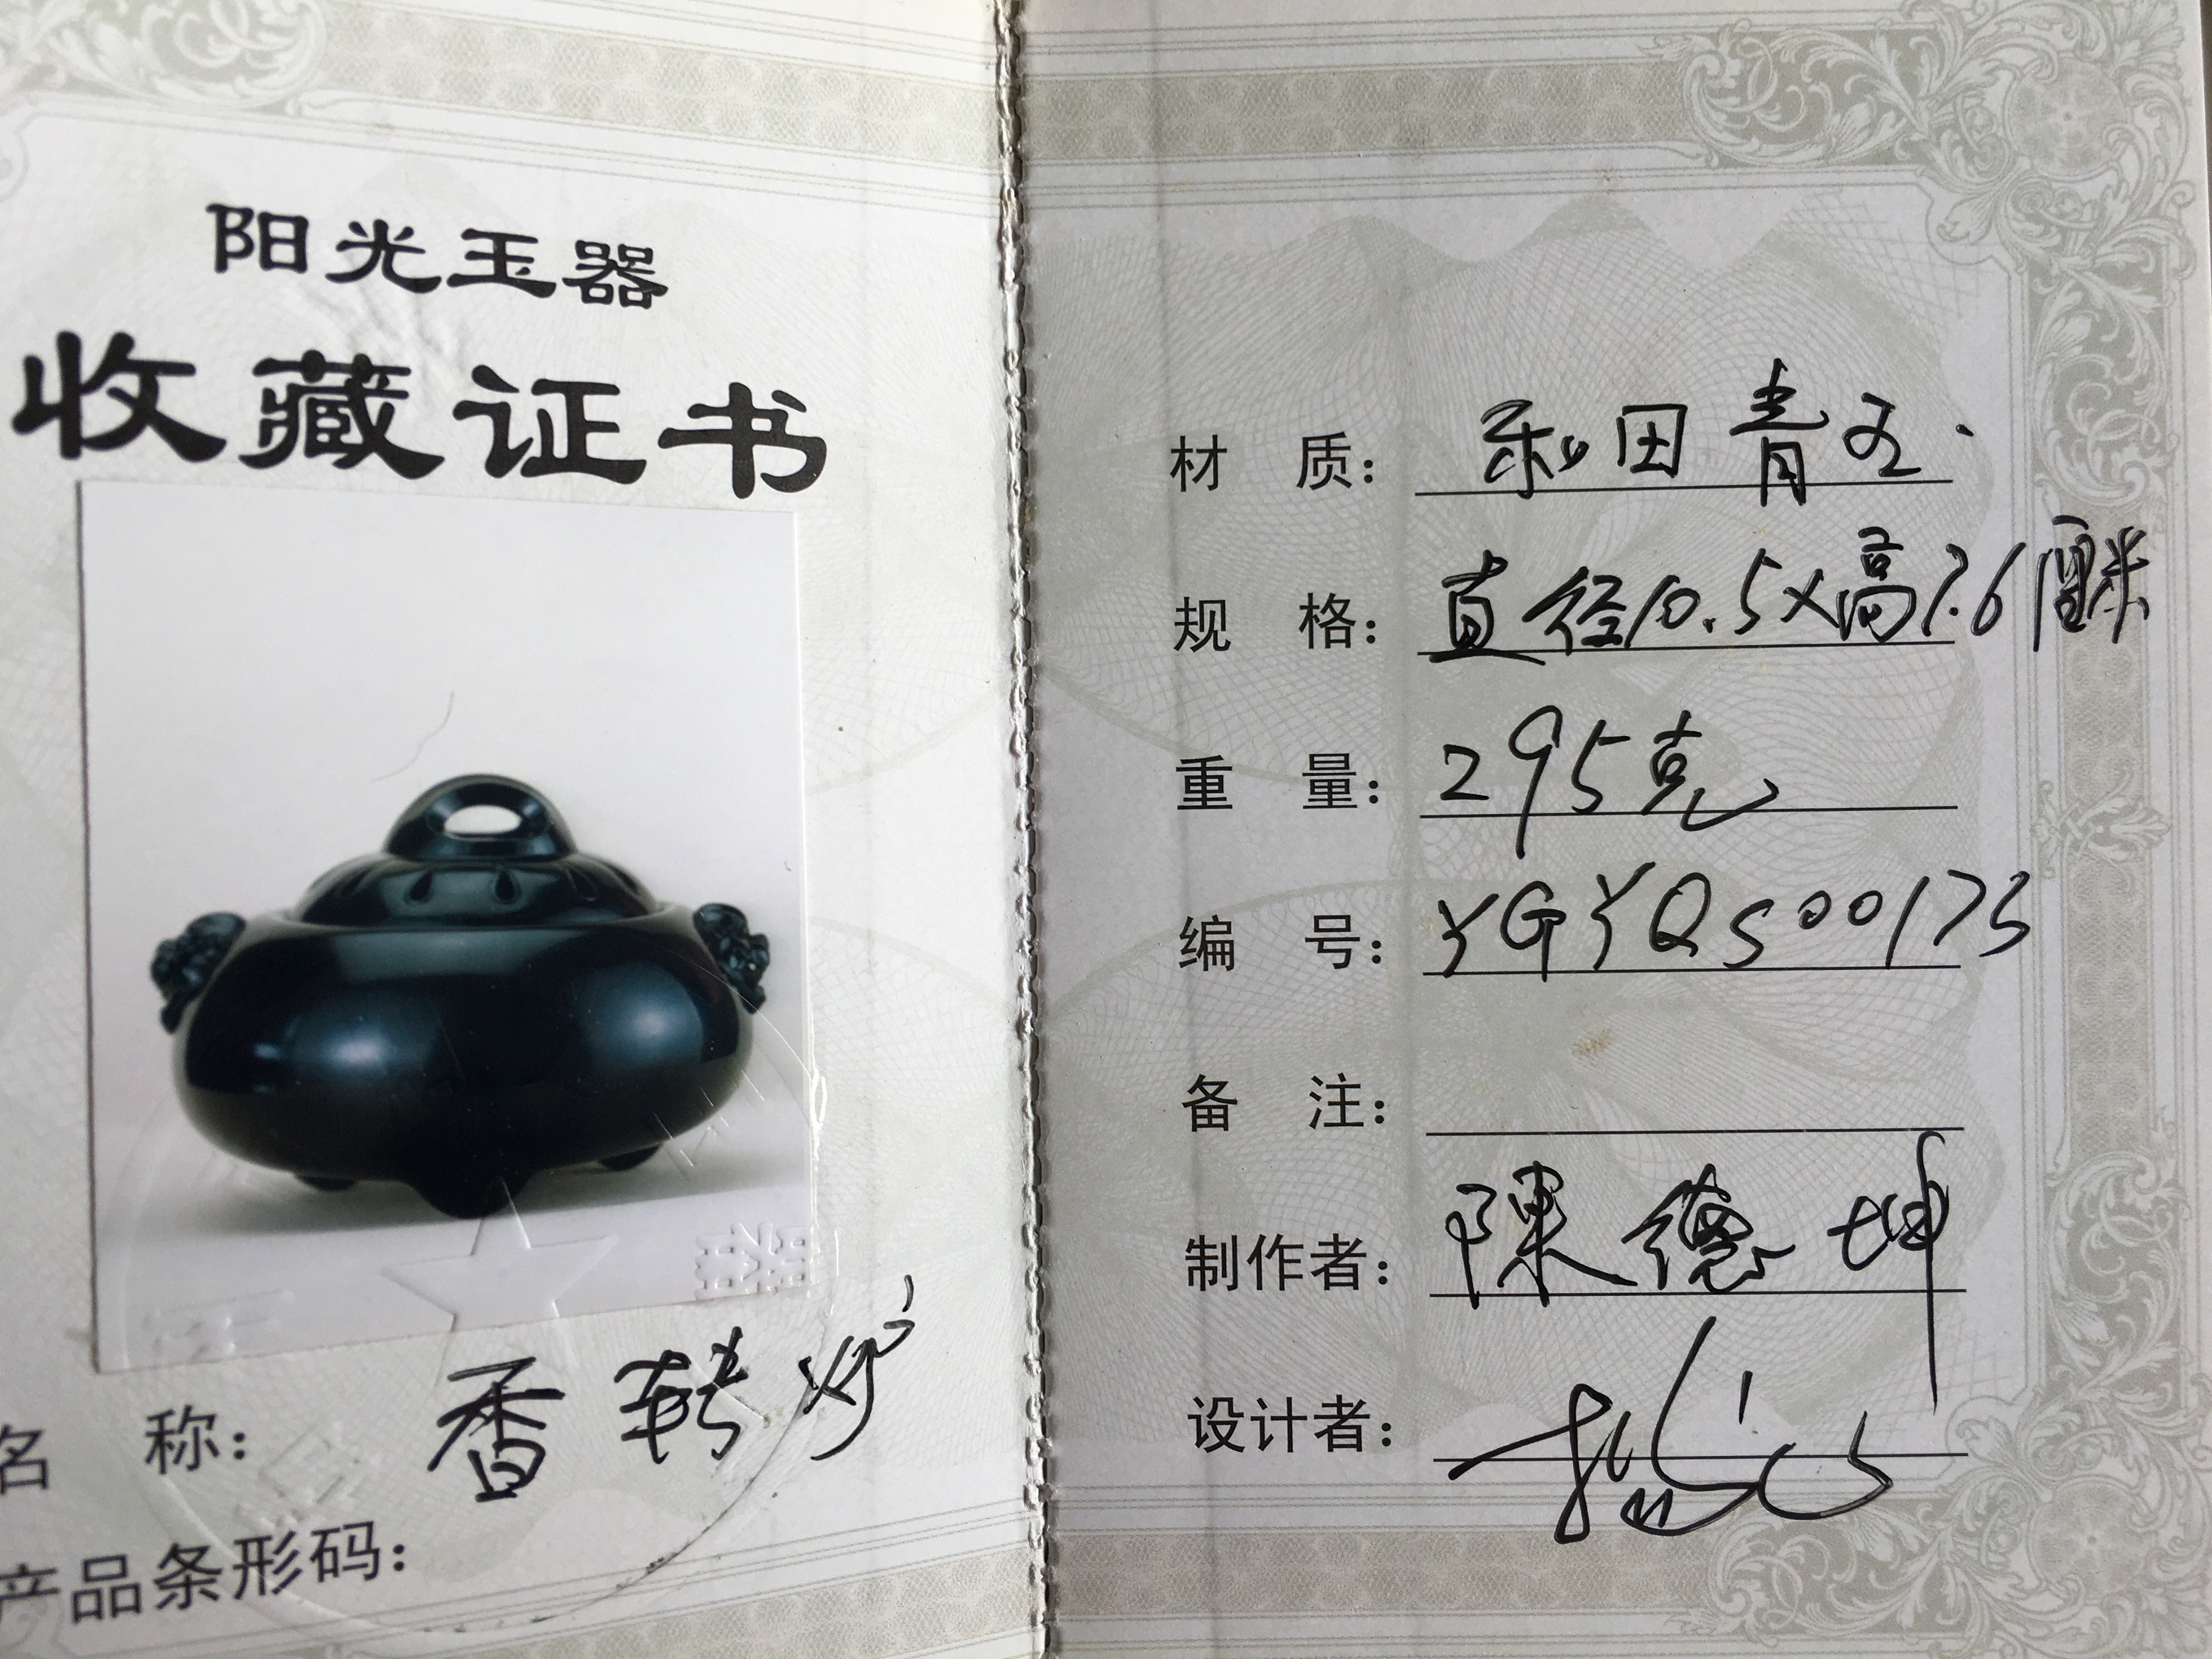 阳光玉器
收藏证书
名 称： 香 转 炉
产品条形码：
材 质： 和田青玉.
规 格： 直径10.5×高7.6厘米
重 量： 295克
编 号： YGYQS00175
备 注：
制作者： 陳德坤
设计者：